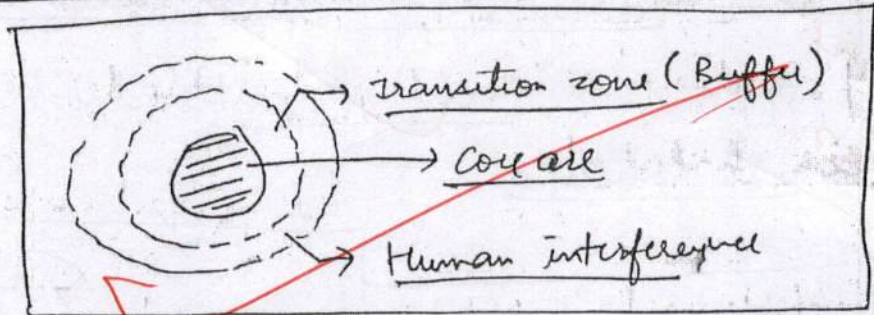 Transition zone (Buffer)
Core are
Human interference